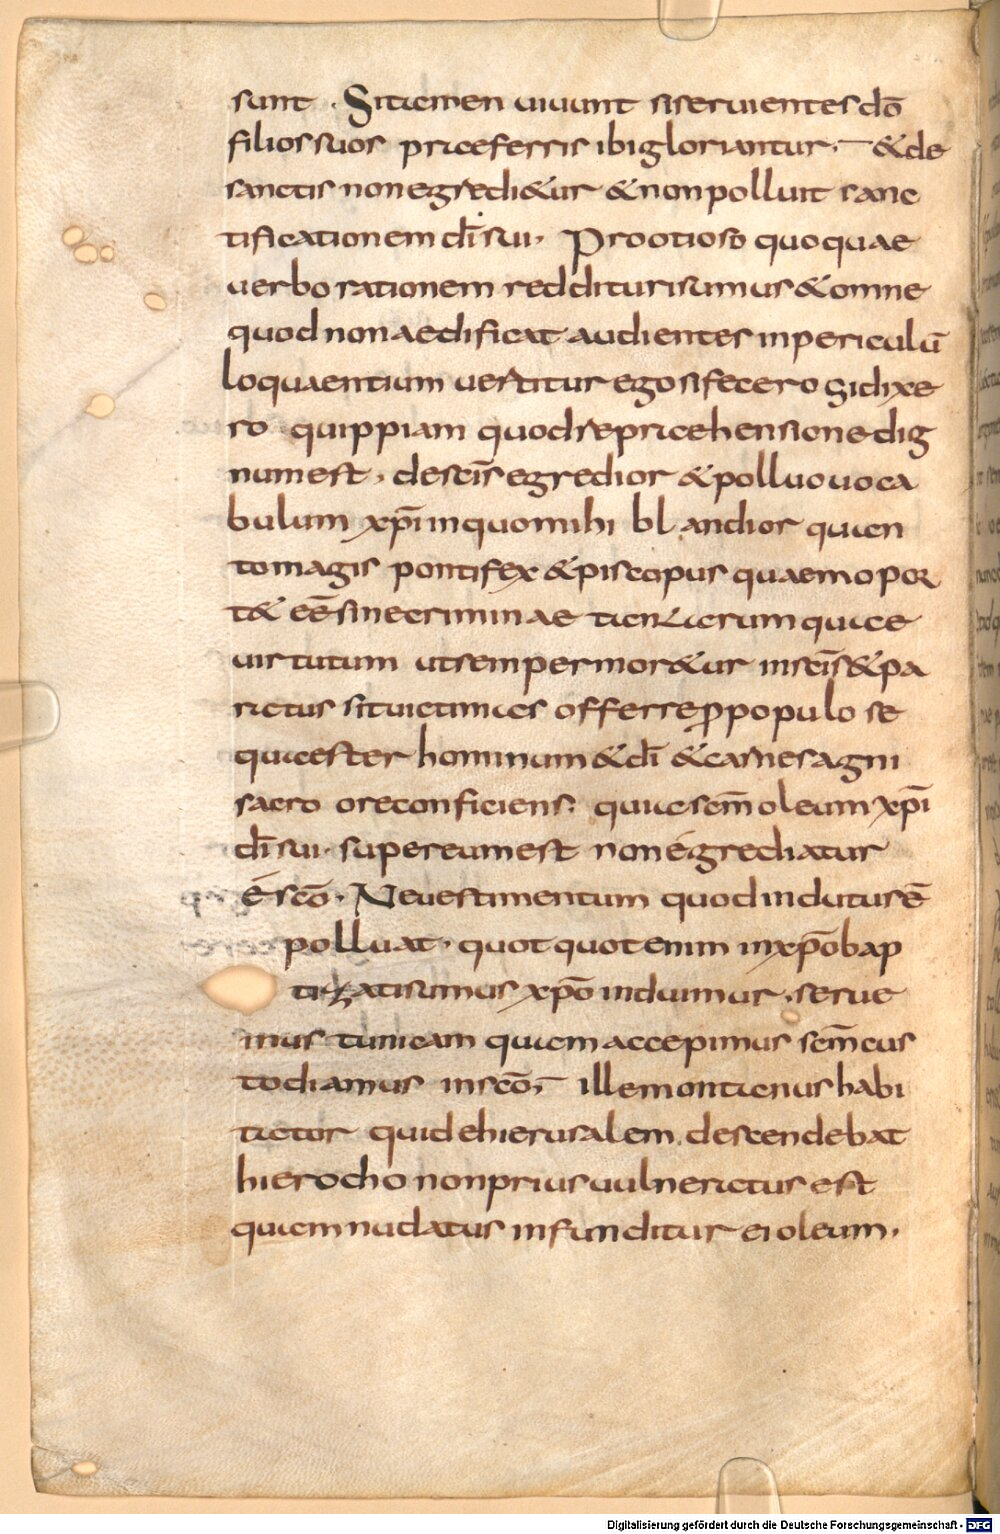 sunt . Sitamen uiuunt siseruientesdō
filiossuos praeferris ibigloriantur. &de
sanctis nonegredi&ur &nonpolluit sanc
tificationemdīsui. Prootioso quoquae
uerbo rationem redditurisumus&omne
quodnonaedificat audientes inpericulū
loquaentium uertitur egosifecero sidixe
ro quippiam quodrepraehensionedig
numest, descīsegredior &polluouoca
bulum xpīinquomihi blandior quan
tomagis pontifex &episcopus quaemopor
t& eēsinecriminae tantarumquae
uirtutum utsempermor&ur inscīs&pa
ratus situictimas offerreꝑpopulo se
quaester hominum&dī &carnesagni
sacro oreconficiens. quiasc̄moleum xpī
dīsui. supereumest nonegrediatur
éscō. Neuestimentum quodindutusē
polluat. quotquotenim inxpōbap
tizatisumus xpōinduimur. serue
mus tunicam quamaccepimus sc̄mcus
todiamus inscō, illemontanushabi
tator quidehierusalem descendebat
hierocho nonpriusuulneratus est
quamnudatus infunditur eioleum.
Digitalisierung gefördert durch die Deutsche Forschungsgemeinschaft - DFG